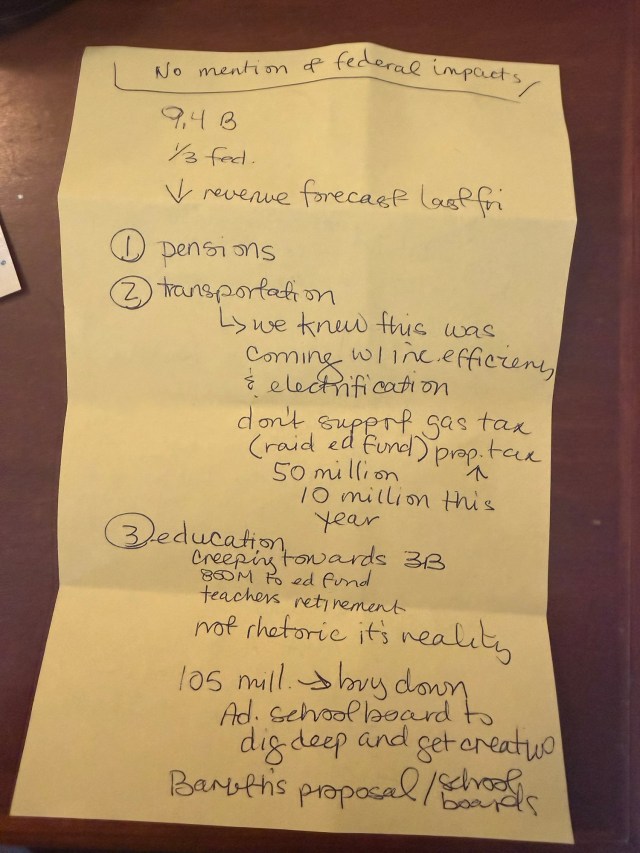 No mention of federal impacts/
9,4 B
1/3 fed.
↓ revenue forecast last fri
① pensions
② transportation
↳ we knew this was
coming w/ inc. efficiency
& electrification
don't support gas tax
(raid ed fund) prop. tax
50 million ↑
10 million this
year
③ education
creeping towards 3B
850M to ed fund
teachers retirement
not rhetoric it's reality
105 mill. → buy down
Ad. school board to
dig deep and get creative
Baruth's proposal / school
boards